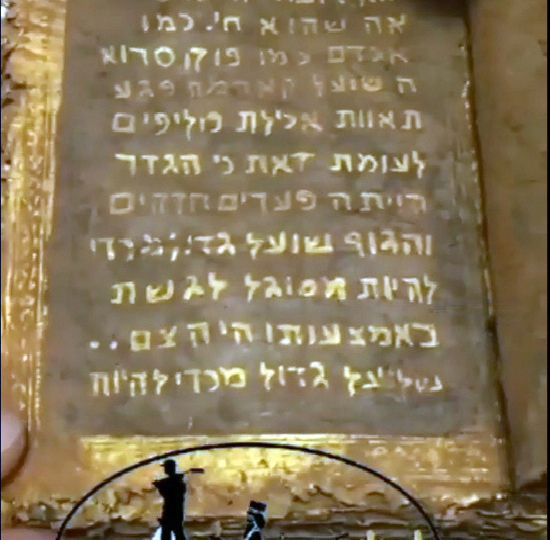 אה שהוא חי. כמו
אגדם כמו פוקסרוא
ה שועל קארמה פגע
תאוות אכילת פוליפים
לעומת זאת כי הגדר
הייתה פערים חדהים
והגוף שועל גדי,מכדי
להיות מסוגל לגשת
באמצעותו היה צם..
גדול מכדי להיות